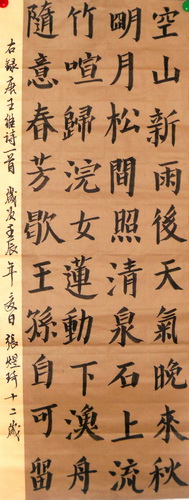 空山新雨後天氣晚來秋
明月松間照清泉石上流
竹喧歸浣女蓮動下漁舟
隨意春芳歇王孫自可留
右録唐王維诗一首 歲次壬辰年 夏日 張煜琦 十二歲